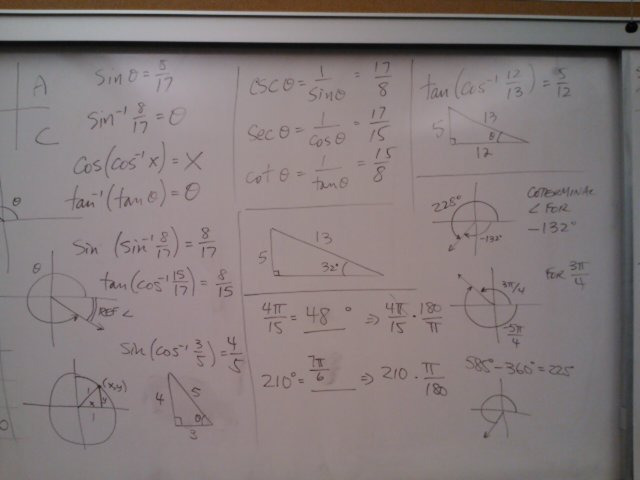 A
C
θ
sin θ = 8/17
sin⁻¹ 8/17 = θ
cos(cos⁻¹ x) = x
tan⁻¹(tan θ) = θ
sin (sin⁻¹ 8/17) = 8/17
tan(cos⁻¹ 15/17) = 8/15
θ
REF ∠
sin(cos⁻¹ 3/5) = 4/5
(x,y)
1
x
y
1
4
5
θ
3
csc θ = 1/sin θ = 17/8
sec θ = 1/cos θ = 17/15
cot θ = 1/tan θ = 15/8
5
13
32°
4π/15 = 48 ° ⇒ 4π/15 · 180/π
210° = 7π/6 ⇒ 210 · π/180
tan(cos⁻¹ 12/13) = 5/12
5
13
θ
12
228°
-132°
COTERMINAL
∠ FOR
-132°
FOR 3π/4
3π/4
-5π/4
585° - 360° = 225°